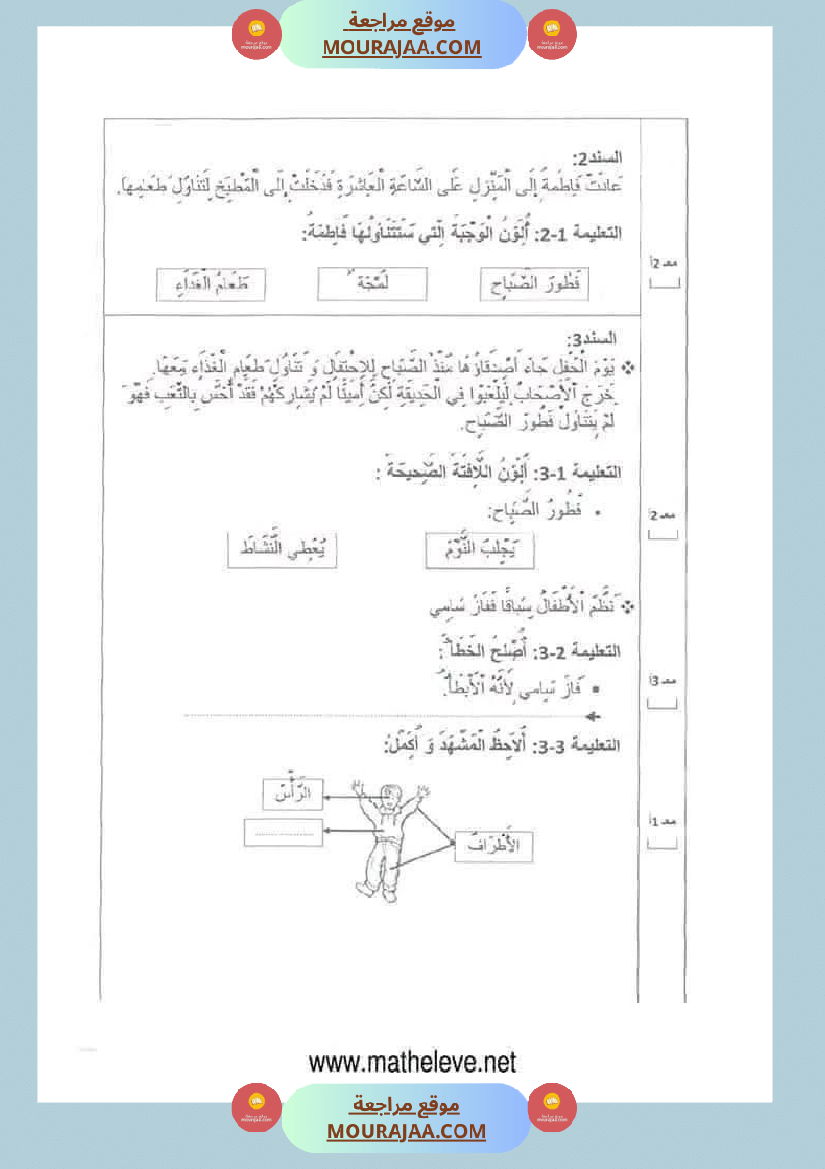 موقع مراجعة
MOURAJAA.COM
السند2:
عَادَتْ فَاطِمَةُ إِلَى الْمَنْزِلِ عَلَى السَّاعَةِ الْعَاشِرَةِ فَدَخَلَتْ إِلَى الْمَطْبَخِ لِتَتَنَاوَلَ طَعَامَهَا.
التعليمة 1-2: أُلَوِّنُ الْوَجْبَةَ الَّتِي سَتَتَنَاوَلُهَا فَاطِمَةُ:
معـ 2أ
فَطُورَ الصَّبَاحِ
لُمْجَة
طَعَامُ الْغَدَاءِ
السند3:
❖ يَوْمَ الْحَفْلِ جَاءَ أَصْدِقَاؤُهَا مُنْذُ الصَّبَاحِ لِلِاحْتِفَالِ وَ تَنَاوُلِ طَعَامِ الْغَدَاءِ مَعَهَا.
خَرَجَ الْأَصْحَابُ لِيَلْعَبُوا فِي الْحَدِيقَةِ لَكِنَّ أَمِينًا لَمْ يُشَارِكْهُمْ فَقَدْ أَحَسَّ بِالتَّعَبِ فَهُوَ
لَمْ يَتَنَاوَلْ فَطُورَ الصَّبَاحِ.
التعليمة 1-3: أُلَوِّنُ اللَّافِتَةَ الصَّحِيحَةَ :
• فَطُورُ الصَّبَاحِ:
معـ 2أ
يَجْلِبُ النَّوْمَ
يُعْطِي النَّشَاطَ
❖ نَظَّمَ الْأَطْفَالُ سِبَاقًا فَفَازَ سَامِي
التعليمة 2-3: أُصْلِحُ الْخَطَأَ :
معـ 3أ
▪ فَازَ سَامِي لِأَنَّهُ الْأَبْطَأُ.
التعليمة 3-3: أُلَاحِظُ الْمَشْهَدَ وَ أُكْمِلُ:
الرَّأْسُ
معـ 1أ
..................
الْأَطْرَافُ
www.matheleve.net
موقع مراجعة
MOURAJAA.COM